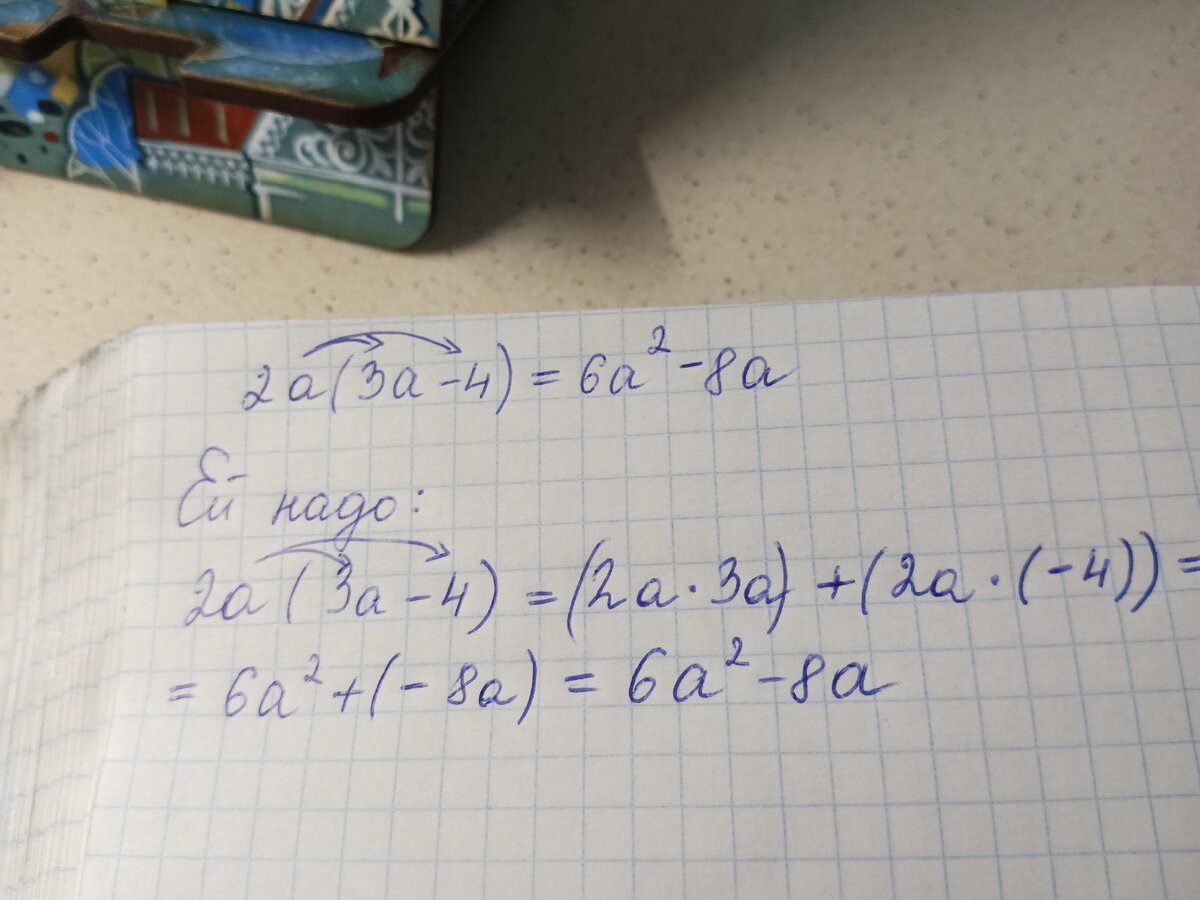 2a(3a-4) = 6a² - 8a
Ей надо:
2a(3a-4) = (2a·3a) + (2a·(-4)) =
= 6a² + (-8a) = 6a² - 8a